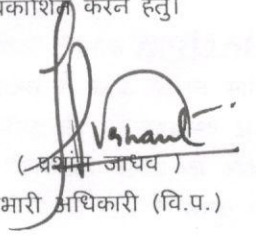 प्रकाशित करने हेतु।
( प्रशांत जाधव )
प्रभारी अधिकारी (वि.प.)